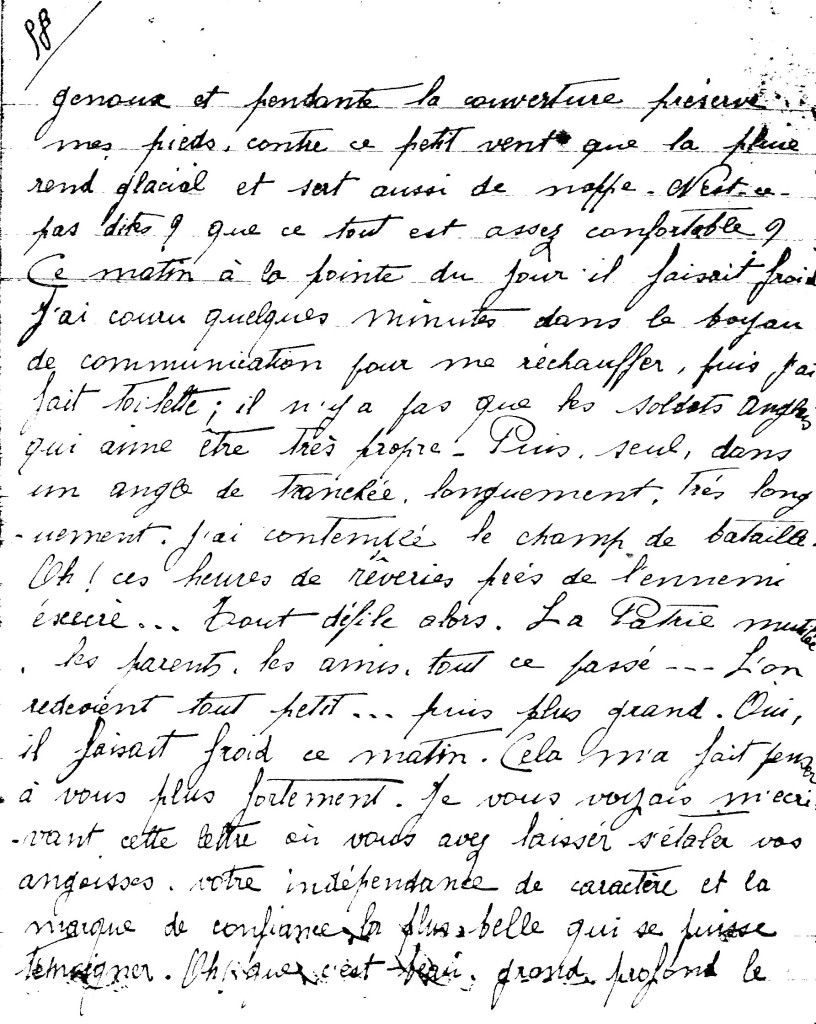 98
genoux et pendante la couverture préserve
mes pieds. contre ce petit vent que la pluie
rend glacial et sert aussi de nappe - N'est-ce-
pas dites ? que ce tout est assez confortable ?
Ce matin à la pointe du jour il faisait froid
J'ai couru quelques minutes dans le boyau
de communication pour me réchauffer, puis j'ai
fait toilette ; il n'y a pas que les soldats anglais
qui aime être très propre - Puis, seul, dans
un angle de tranchée, longuement, très long
-uement. j'ai contemplé le champ de bataille.
Oh ! ces heures de rêveries près de l'ennemi
éxécré... Tout défile alors. La Patrie mutilée
. les parents. les amis. tout ce passé --- L'on
redevient tout petit... puis plus grand. Oui,
il faisait froid ce matin. Cela m'a fait penser
à vous plus fortement. Je vous voyais m'écri-
-vant cette lettre où vous avez laissér s'étaler vos
angoisses. votre indépendance de caractère et la
marque de confiance la plus belle qui se puisse
témoigner. Oh ! que c'est beau. grand. profond le